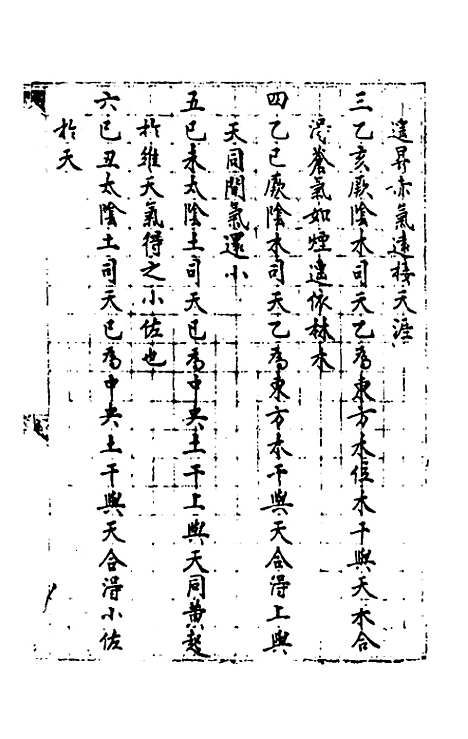 遠昇赤氣遠接天涯
三乙亥厥陰木司天乙為東方木位木干與天木合
淺蒼氣如煙遠依林木
四乙巳厥陰木司天乙為東方木干與天合得上與
天同間氣還小
五己未太陰土司天己為中央土干上與天同黄起
於維天氣得之小佐也
六己丑太陰土司天己為中央土干與天合得小佐
於天